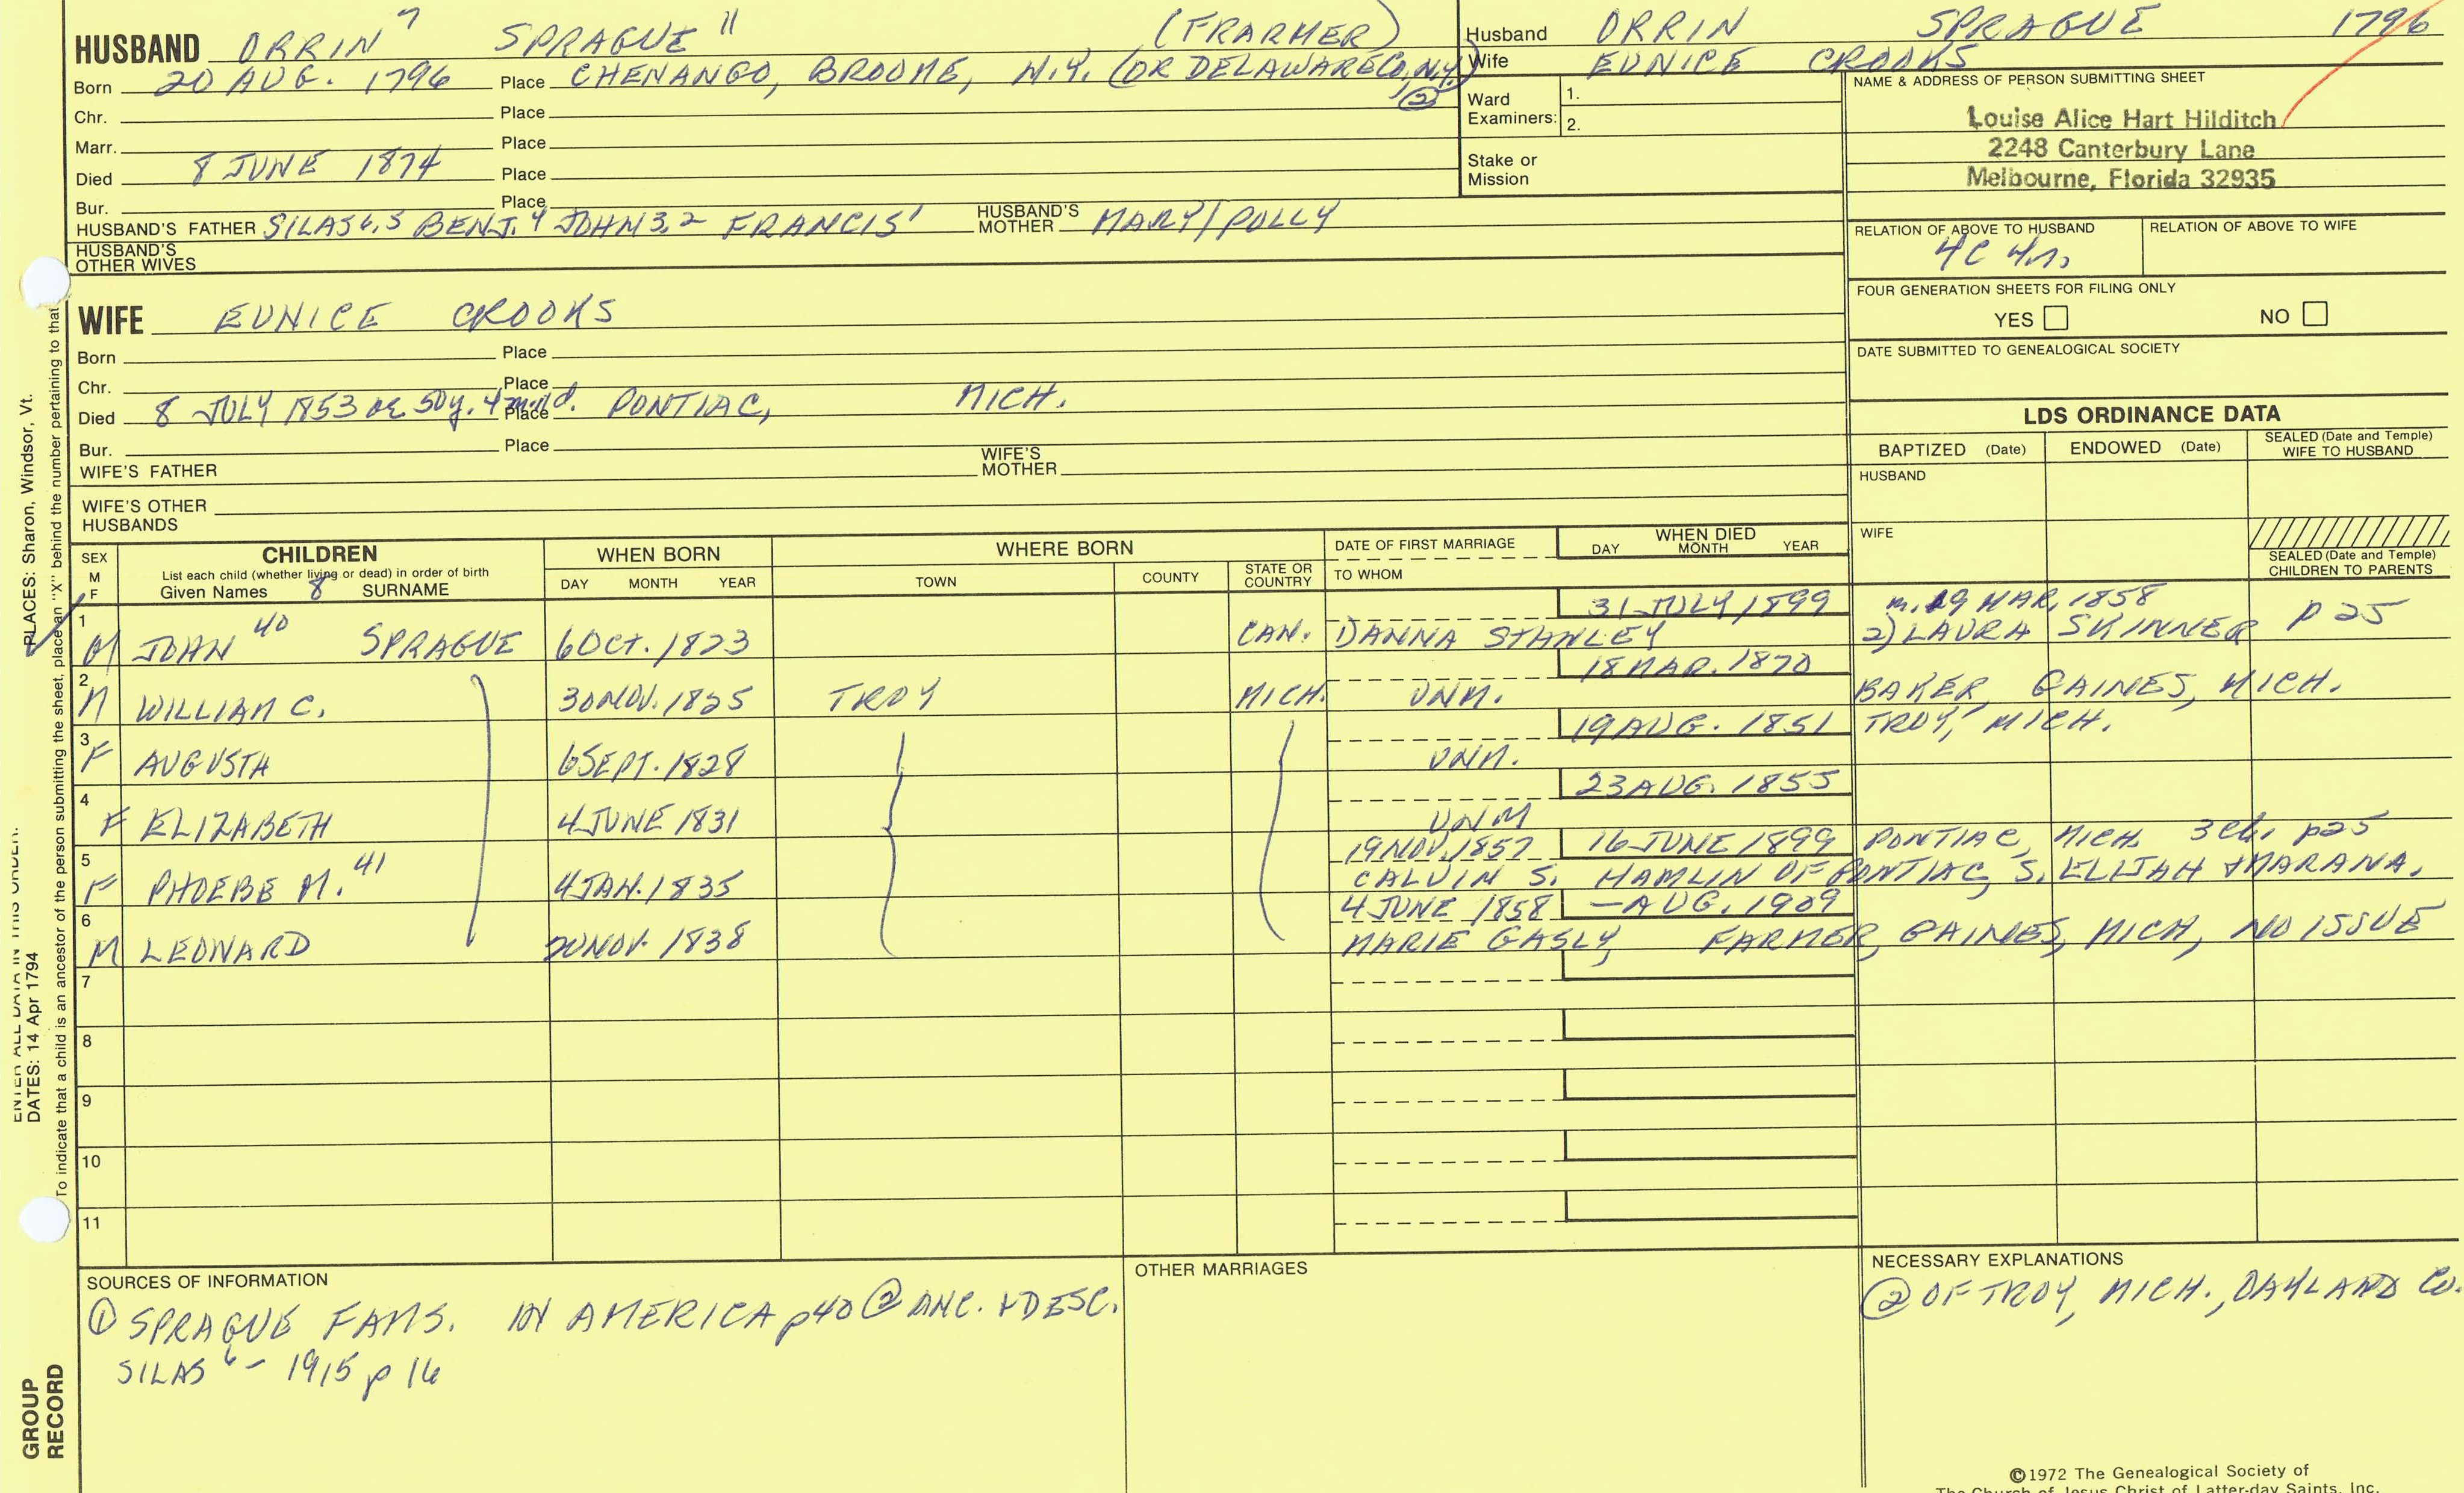 HUSBAND ORRIN 7 SPRAGUE 11 (FRARMER)
Born 20 AUG. 1796 Place CHENANGO, BROOME, N.Y. (OR DELAWARE CO, N.Y.) ②
Chr. Place
Marr. Place
Died 8 JUNE 1874 Place
Bur. Place
HUSBAND'S FATHER SILAS 6,5 BENJ. 4 JOHN 3,2 FRANCIS 1 HUSBAND'S MOTHER MARY/POLLY
HUSBAND'S OTHER WIVES
Husband ORRIN SPRAGUE 1796
Wife EUNICE CROOKS
Ward Examiners: 1.
2.
Stake or Mission
NAME & ADDRESS OF PERSON SUBMITTING SHEET
Louise Alice Hart Hilditch
2248 Canterbury Lane
Melbourne, Florida 32935
RELATION OF ABOVE TO HUSBAND RELATION OF ABOVE TO WIFE
4C 4r,
FOUR GENERATION SHEETS FOR FILING ONLY
YES NO
DATE SUBMITTED TO GENEALOGICAL SOCIETY
WIFE EUNICE CROOKS
Born Place
Chr. Place
Died 8 JULY 1853 ae 50y. 4m. d. Place PONTIAC, MICH.
Bur. Place
WIFE'S FATHER WIFE'S MOTHER
WIFE'S OTHER HUSBANDS
LDS ORDINANCE DATA
BAPTIZED (Date) ENDOWED (Date) SEALED (Date and Temple) WIFE TO HUSBAND
HUSBAND
WIFE
SEALED (Date and Temple) CHILDREN TO PARENTS
SEX M F CHILDREN WHEN BORN WHERE BORN DATE OF FIRST MARRIAGE WHEN DIED
List each child (whether living or dead) in order of birth
Given Names 8 SURNAME DAY MONTH YEAR TOWN COUNTY STATE OR COUNTRY TO WHOM DAY MONTH YEAR
31 JULY 1899 m. 29 MAR. 1858
1 M JOHN 40 SPRAGUE 6 OCT. 1823 CAN. DANNA STANLEY 2) LAURA SKINNER p 25
18 MAR. 1870
2 M WILLIAM C. 30 NOV. 1825 TROY MICH. UNM. BAKER, GAINES, MICH.
19 AUG. 1851 TROY, MICH.
3 F AUGUSTA 6 SEPT. 1828 UNM.
23 AUG. 1855
4 F ELIZABETH 4 JUNE 1831 UNM
19 NOV. 1857 16 JUNE 1899 PONTIAC, MICH. 3 ch. p25
5 F PHOEBE M. 41 4 JAN. 1835 CALVIN S. HAMLIN OF PONTIAC, S. ELIJAH & MARANA.
4 JUNE 1858 — AUG. 1909
6 M LEONARD 20 NOV. 1838 MARIE GASLY, FARMER, GAINES, MICH, NO ISSUE
7
8
9
10
11
SOURCES OF INFORMATION
① SPRAGUE FAMS. IN AMERICA p40 ② ANC. & DESC.
SILAS 6 – 1915 p 16
OTHER MARRIAGES
NECESSARY EXPLANATIONS
② OF TROY, MICH., OAKLAND CO.
©1972 The Genealogical Society of
The Church of Jesus Christ of Latter-day Saints, Inc.
ENTER ALL DATA IN THIS ORDER:
PLACES: Sharon, Windsor, Vt.
DATES: 14 Apr 1794
To indicate that a child is an ancestor of the person submitting the sheet, place an "X" behind the number pertaining to that
GROUP RECORD